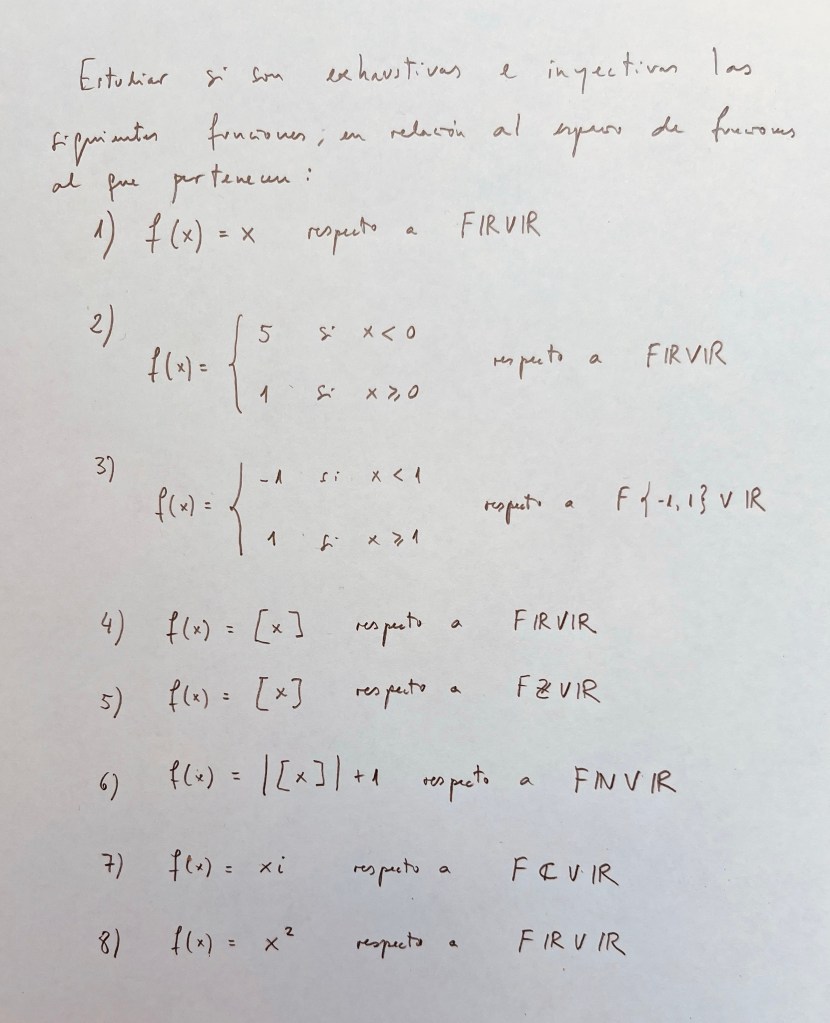 Estudiar si son exhaustivas e inyectivas las
siguientes funciones, en relación al espacio de funciones
al que pertenecen:
1) f(x) = x respecto a FIRVIR
2) f(x) = { 5 si x < 0
1 si x ⩾ 0 respecto a FIRVIR
3) f(x) = { -1 si x < 1
1 si x ⩾ 1 respecto a F{-1, 1} V IR
4) f(x) = [x] respecto a FIRVIR
5) f(x) = [x] respecto a FℤVIR
6) f(x) = |[x]| + 1 respecto a FINVIR
7) f(x) = xi respecto a FℂVIR
8) f(x) = x² respecto a FIRVIR